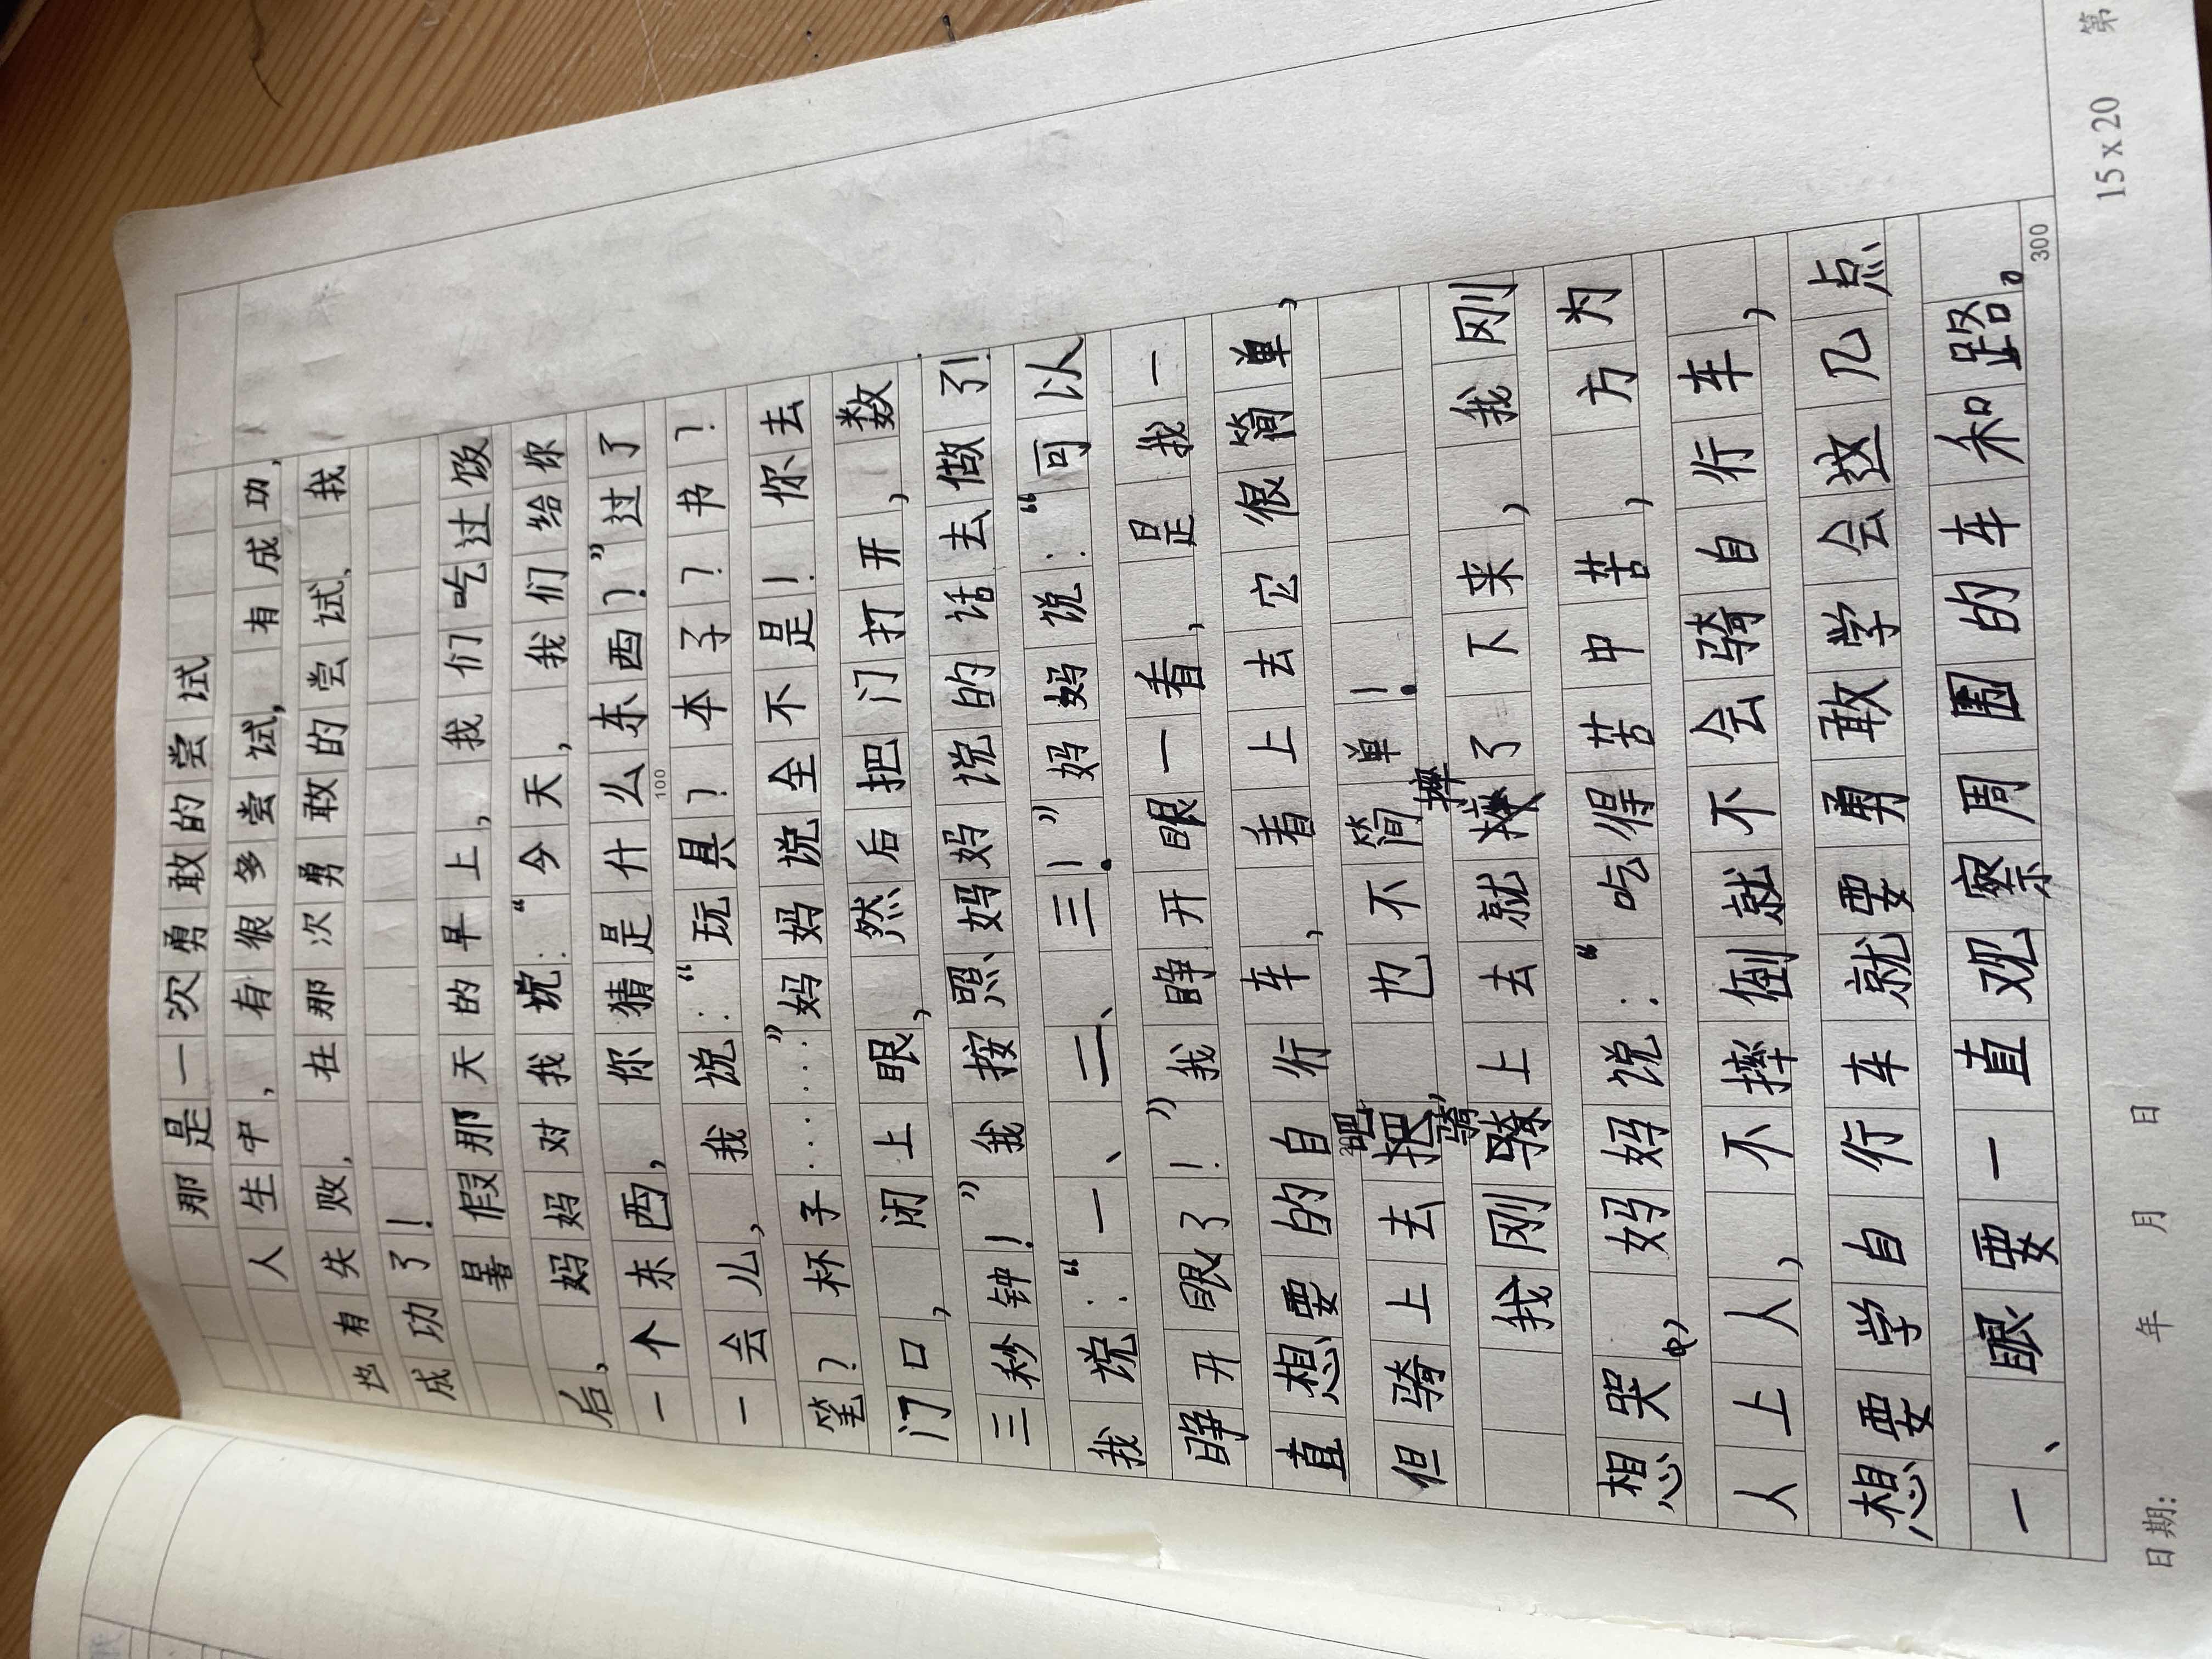 那是一次勇敢的尝试
人生中，有很多尝试，有成功，
也有失败，在那次勇敢的尝试，我
成功了！
暑假那天的早上，我们吃过饭
后，妈妈对我说：“今天，我们给你
一个东西，你猜是什么东西？”过了
100
一会儿，我说：“玩具？本子？书？
笔？杯子……”妈妈说全不是！你去
门口，闭上眼，然后把门打开，数
三秒钟！”我按照妈妈说的话去做了！
我说：“一、二、三！”妈妈说：“可以
睁开眼了！”我睁开眼一看，是我一
直想要的自行车，看上去它很简单，
但骑上去吧，也不简单！
我刚骑上去就摔了下来，我刚
想哭。妈妈说：“吃得苦中苦，方为
人上人，不摔倒就不会骑自行车，
想要学自行车就要勇敢学会这几点
一、眼要一直观察周围的车和路。
300
日期： 年 月 日 15 x 20 第